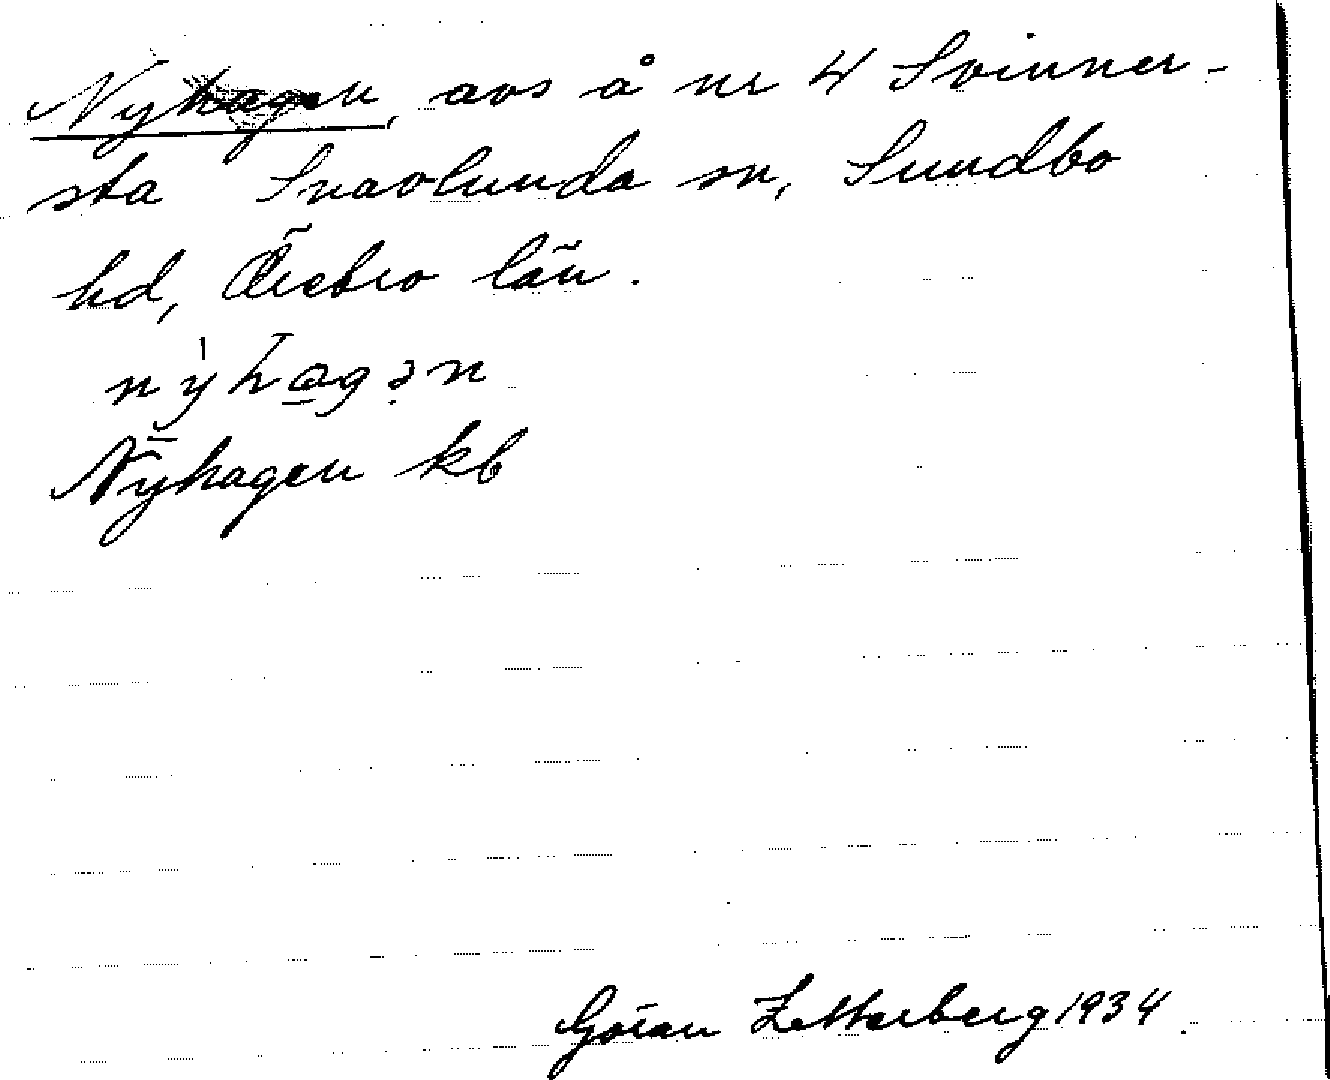 Nyhagen, avs å nr 4 Svinner-
sta Snavlunda sn, Sundbo
hd, Örebro län.
nỳhagən
Nyhagen kb
Göran Zetterberg 1934